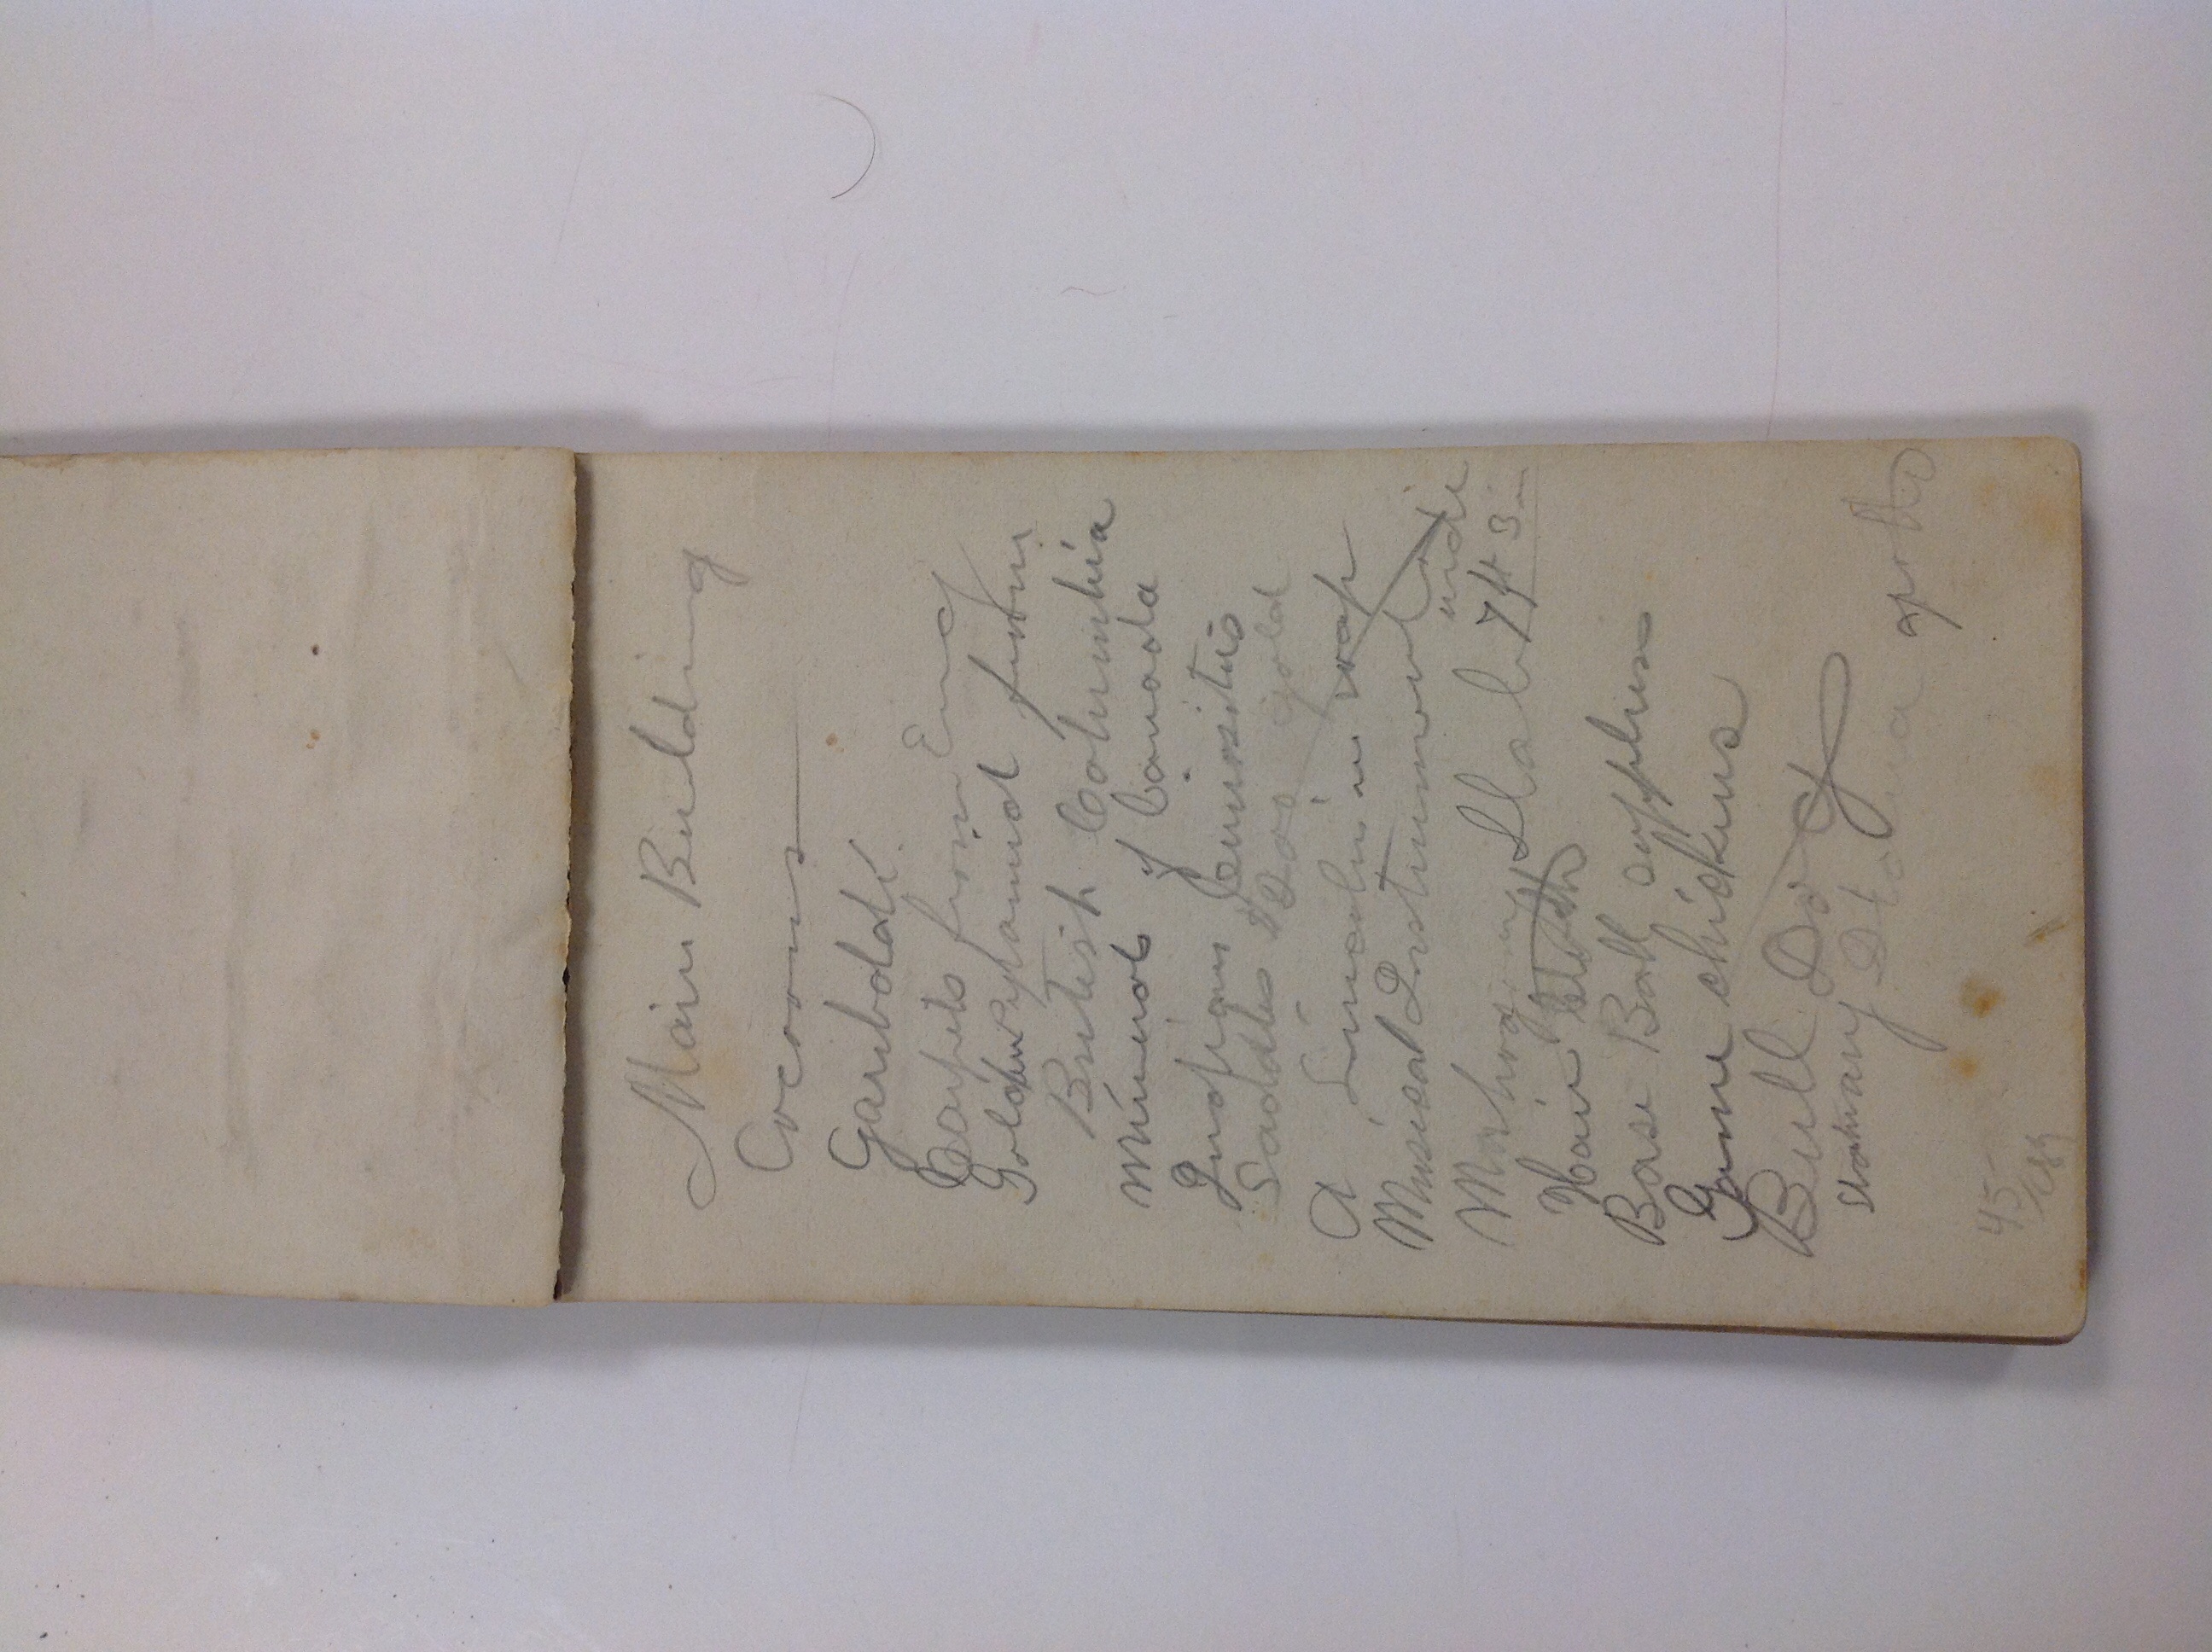 Main Building
Cocoons
Garibaldi
Carpets from Eng
Golden Pyramid from
British Columbia
Minerals of Canada
Indian Curiosities
Saddles gold
A Lincoln in soap
Musical Instruments
wide
Mahogany Slab 7 ft 3 in
Hair Cloth
Base Ball supplies
Game chickens
Bull Dog
Statuary
45